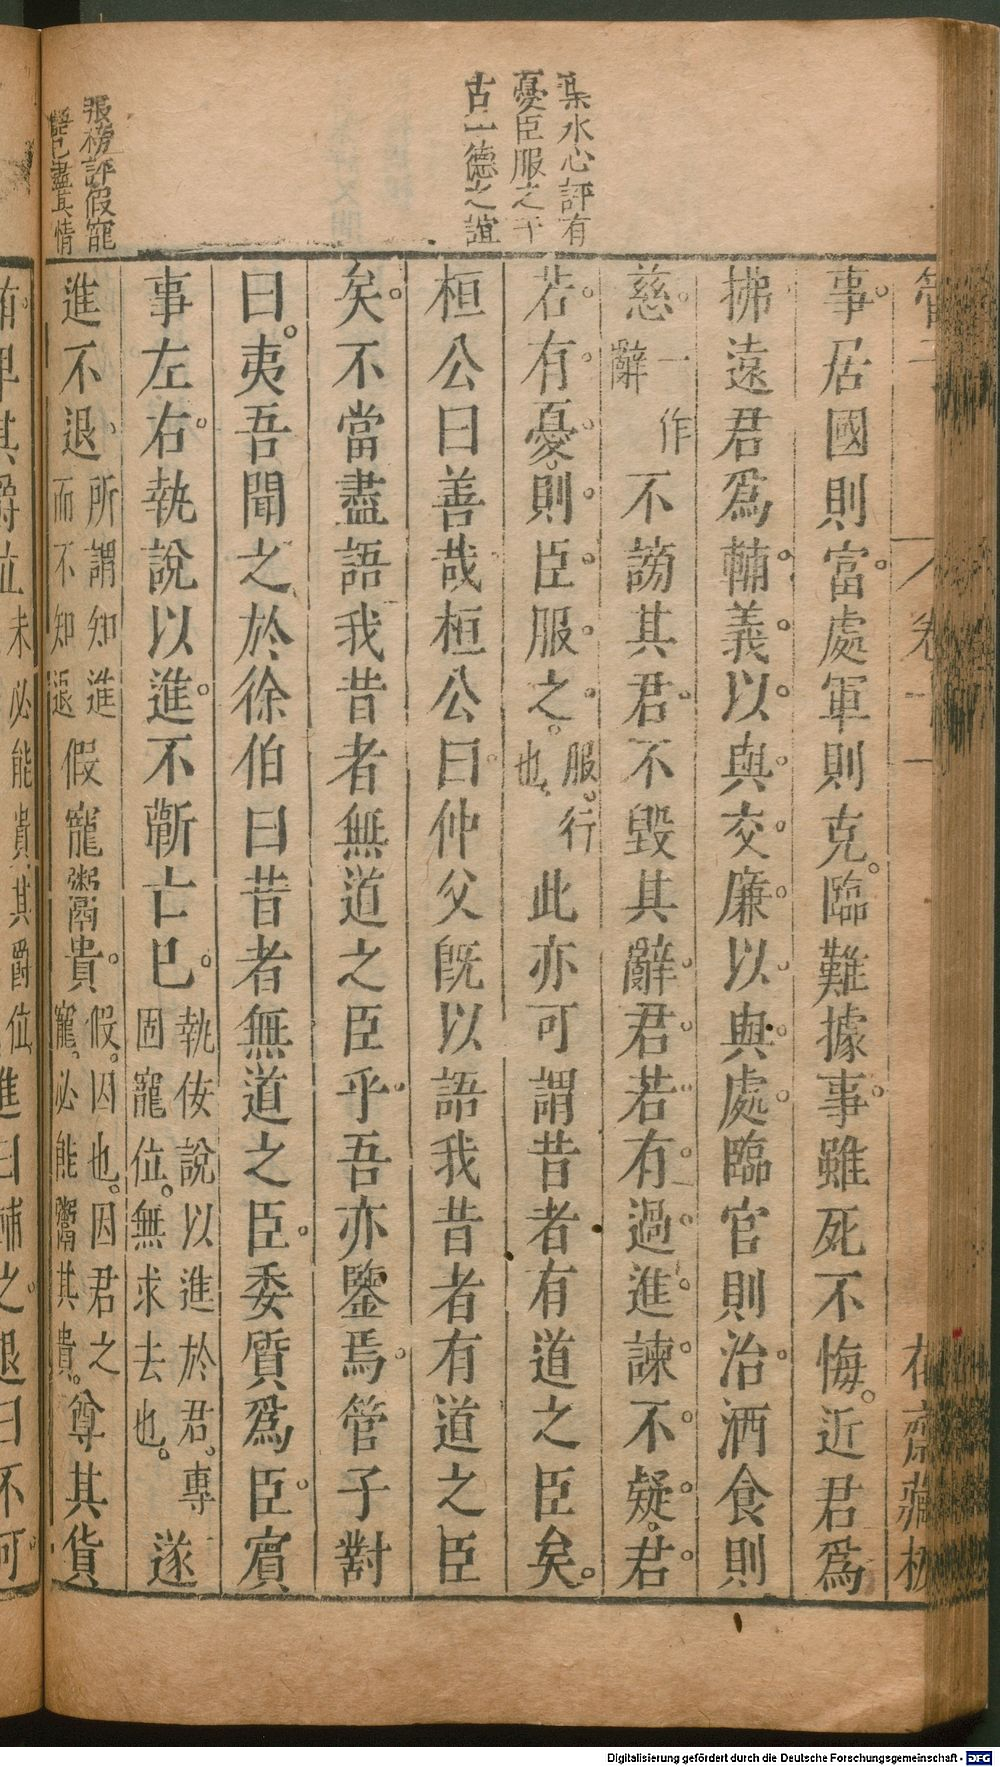 事居國則富處軍則克臨難據事雖死不悔近君爲
拂遠君爲輔義以與交廉以與處臨官則治酒食則
慈一作辭不謗其君不毀其辭君若有過進諫不疑君
若有憂則臣服之服行也此亦可謂昔者有道之臣矣
桓公曰善哉桓公曰仲父旣以語我昔者有道之臣
矣不當盡語我昔者無道之臣乎吾亦鑒焉管子對
曰夷吾聞之於徐伯曰昔者無道之臣委質爲臣賓
事左右執說以進不蘄亡已執佞說以進於君專固寵位無求去也遂
進不退所謂知進而不知退假寵鬻貴假因也因君之寵必能鬻其貴尊其貨
水心評有
憂臣服之
古一德之誼
張榜評假寵
語已盡其情
其爵位未必能貴其爵位進曰輔之退曰不可
管子
卷
花齋藏板
Digitalisierung gefördert durch die Deutsche Forschungsgemeinschaft - DFG